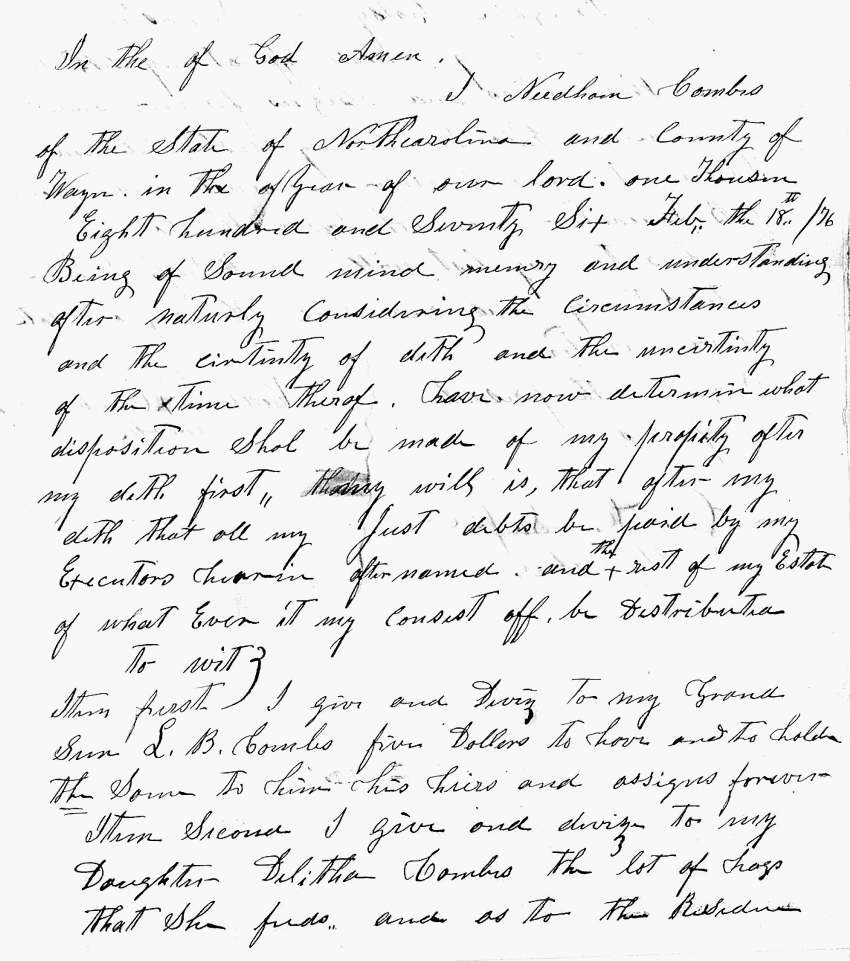 In the of God Amen.
I Needham Combs
of the State of Northcarolina and County of
Wayn. in the of Year of our lord. one Thousan
Eight hundred and Seventy Six Feb,, the 18th /76
Being of Sound mind memry and understanding
after naturly Considering the Circumstances
and the cirtinty of deth and the uncirtinty
of the time therof. have now determin what
disposition Shol be made of my propity after
my deth first,, my will is, that after my
deth that all my Just debts be paid by my
Executors hearin after named. and the rest of my Estat
of what Ever it my consist off. be Distributed
to wit }
Itim first I give and Diviz to my Grand
Sun L. B. Combs five Dollers to have and to hold
the Same to him his hiers and assigns forever
Itim Second I give and divize to my
Daughter Delitha Combs the 3 lot of hogs
that She feeds.. and as to the Residue